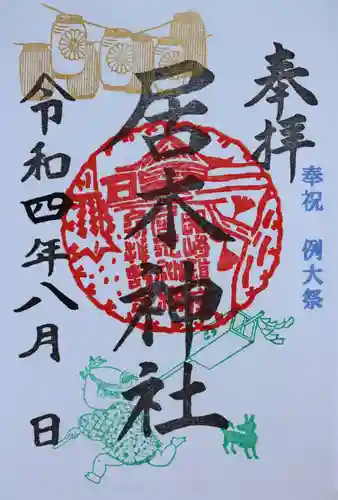 奉拝
奉祝 例大祭
居木神社
令和四年八月 日